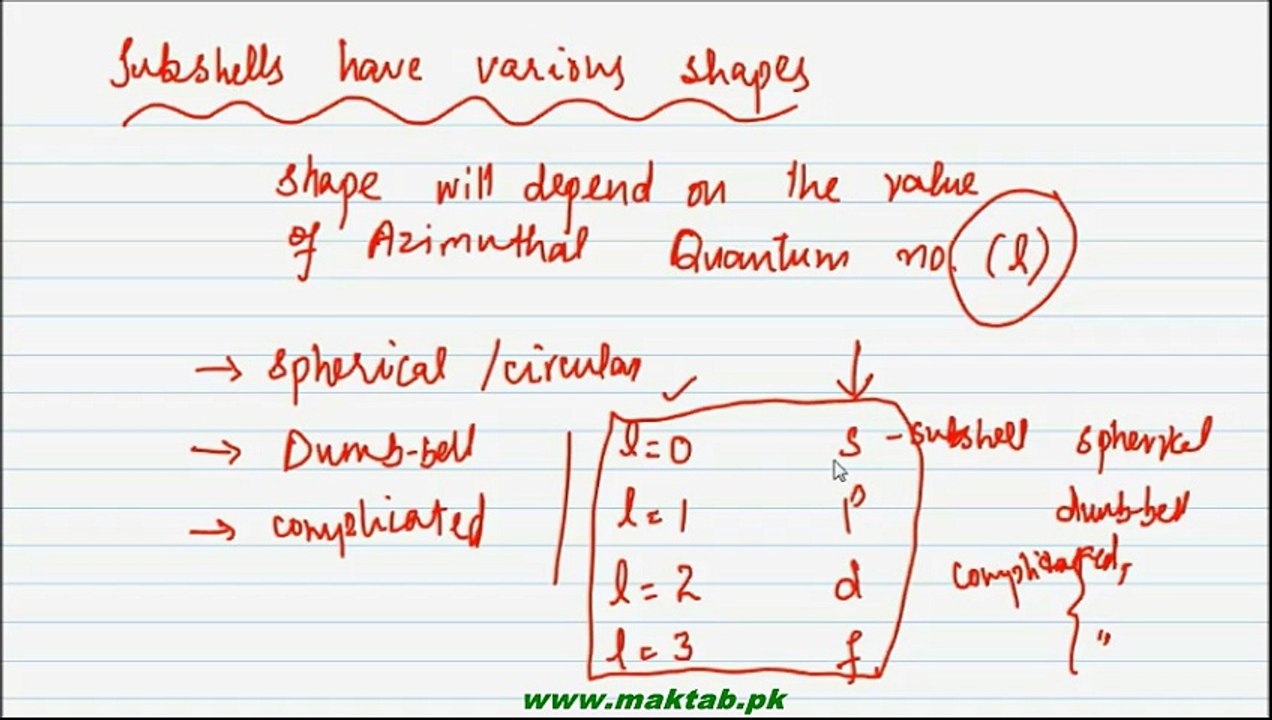 Subshells have various shapes
shape will depend on the value
of Azimuthal Quantum no. (l)
→ spherical / circular
→ Dumb-bell
→ complicated
l = 0 s - subshell spherical
l = 1 p dumb-bell
l = 2 d complicated,
l = 3 f "
www.maktab.pk